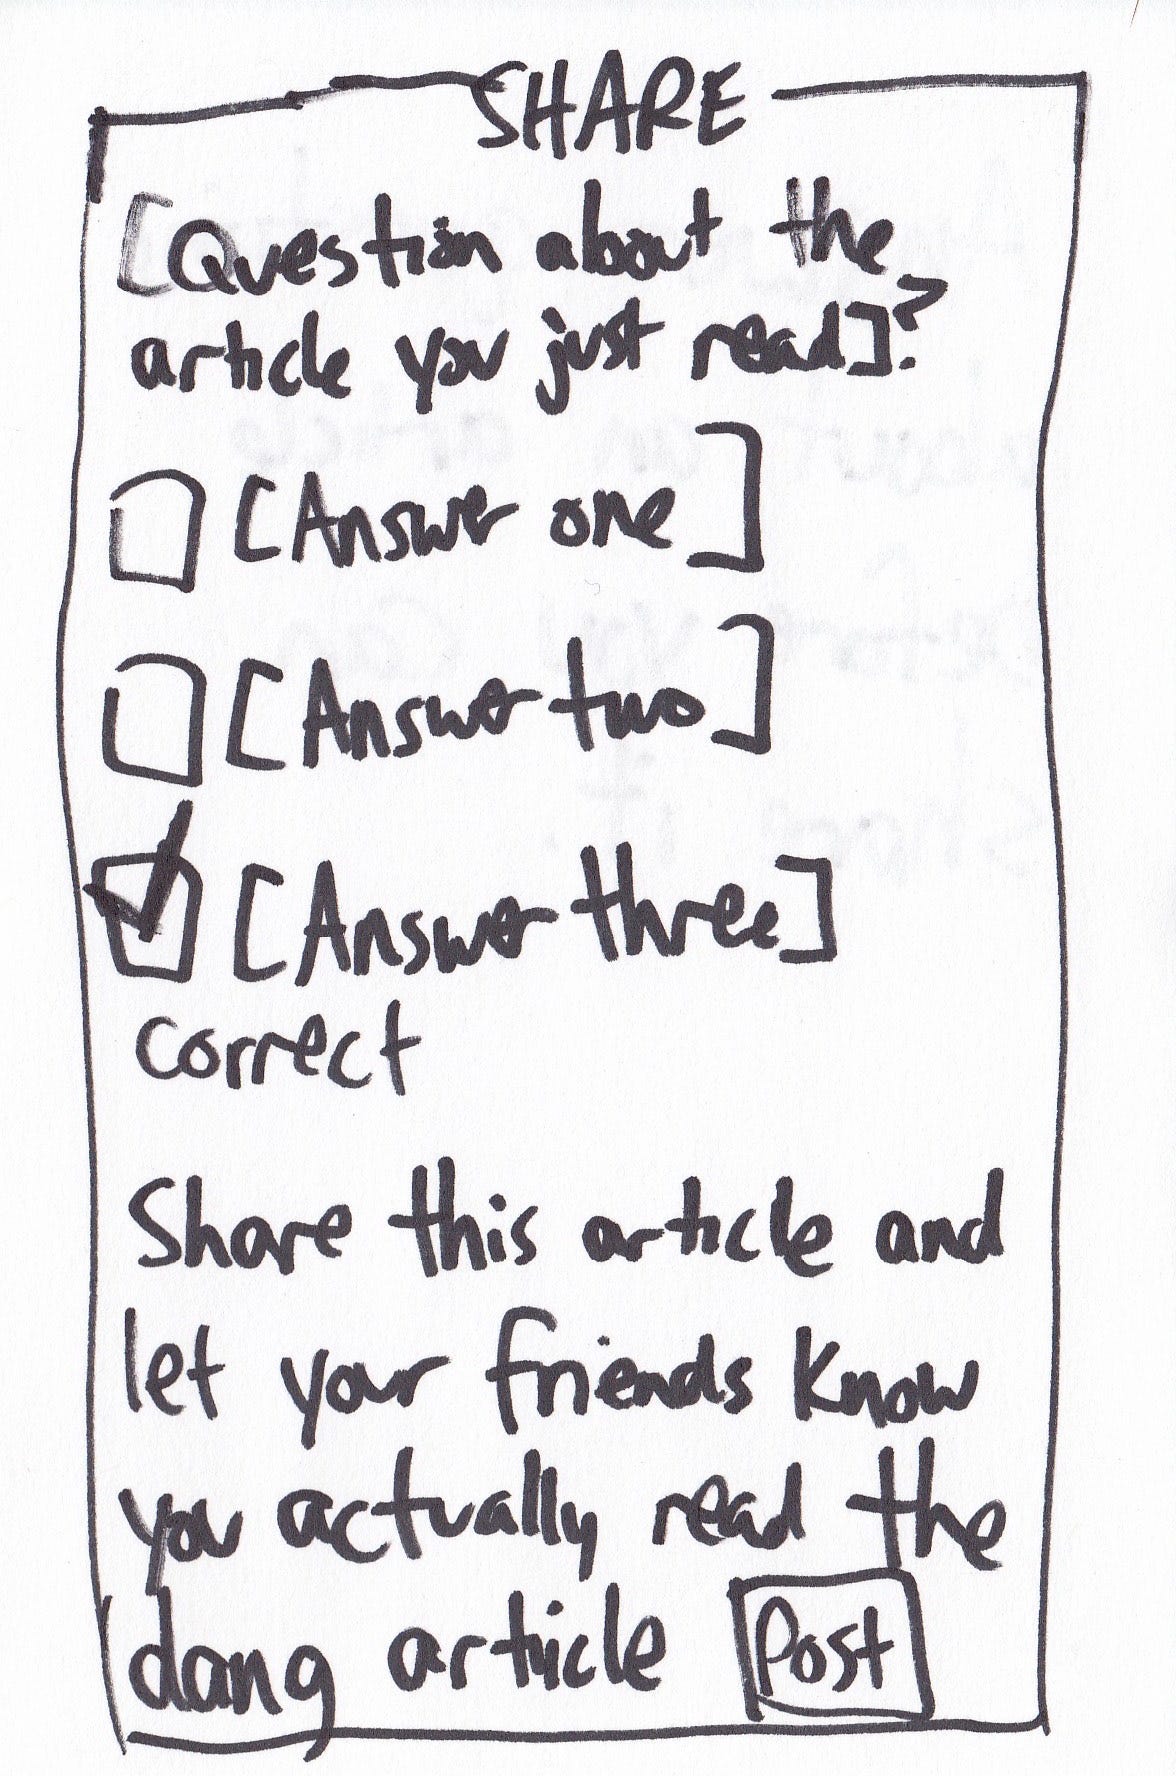 SHARE
[Question about the
article you just read]?
[Answer one]
[Answer two]
[Answer three]
correct
Share this article and
let your friends know
you actually read the
dang article Post